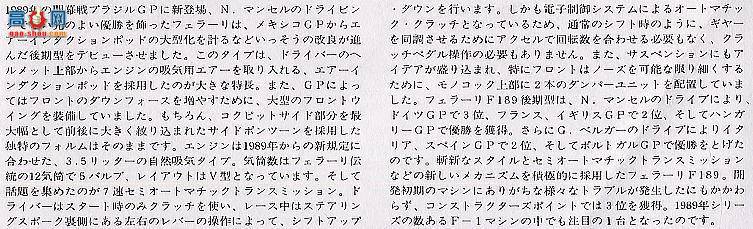 1989年の開幕戦ブラジルGPに新登場、N．マンセルのドライビン
のよい優勝を飾ったフェラーリは、メキシコGPからエ
アーインダクションポッドの大型化を計るなどいっそうの改良が進
んだ後期型をデビューさせました。このタイプは、ドライバーのヘ
ルメット上部からエンジンの吸気用エアーを取り入れる、エアーイ
ンダクションポッドを採用したのが大きな特長。また、GPによっ
てはフロントのダウンフォースを増やすために、大型のフロントウ
イングを装備していました。もちろん、コクピットサイド部分を最
大幅として前後に大きく絞り込まれたサイドポンツーンを採用した
独特のフォルムはそのままです。エンジンは1989年からの新規定に
合わせた、3.5リッターの自然吸気タイプ。気筒数はフェラーリ伝
統の12気筒で5バルブ、レイアウトはV型となっています。そして
話題を集めたのが7速セミオートマチックトランスミッション。ド
ライバーはスタート時のみクラッチを使い、レース中はステアリン
グスポーク裏側にある左右のレバーの操作によって、シフトアップ
・ダウンを行います。しかも電子制御システムによるオートマチッ
ク・クラッチとなっているため、通常のシフト時のように、ギヤー
を同調させるためにアクセルで回転数を合わせる必要もなく、クラ
ッチペダル操作の必要もありません。また、サスペンションにもア
イデアが盛り込まれ、特にフロントはノーズを可能な限り細くする
ために、モノコック上部に2本のダンパーユニットを配置していま
した。フェラーリF189後期型は、N．マンセルのドライブにより、
ドイツGPで3位、フランス、イギリスGPで2位、そしてハンガ
リーGPで優勝を獲得。さらにG．ベルガーのドライブによりイタ
リア、スペインGPで2位、そしてポルトガルGPで優勝をとげた
のです。斬新なスタイルとセミオートマチックトランスミッション
などの新しいメカニズムを積極的に採用したフェラーリF189。開
発初期のマシンにありがちな様々なトラブルが発生したにもかかわ
らず、コンストラクターズポイントでは3位を獲得。1989年シリー
ズの数あるF-1マシンの中でも注目の1台となったのです。
高び网
www.gao-shou.com